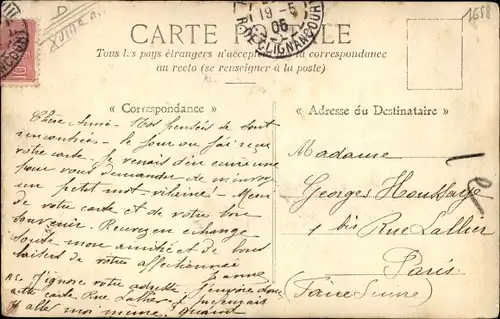 1658
19-5
05
R. DE CLIGNANCOURT
CARTE POSTALE
Tous les pays étrangers n'acceptent pas la correspondance
au recto (se renseigner à la poste)
« Correspondance »
« Adresse du Destinataire »
Chère Amie - Nos pensées se sont
rencontrées - le jour où j'ai reçu
votre carte. Je venais d'en
pour vous demander de m'envoyer
un petit mot - vilaine! Merci
de votre carte et de votre bon
souvenir. Recevez en échange
toute mon amitié et de bons
baisers de votre affectionnée
Jeanne
P.S. J'ignore votre adresse. J'envoie donc
cette carte Rue Lallier.
Madame
Georges Houssaye
1 bis Rue Lallier
Paris
(Faire Suivre)